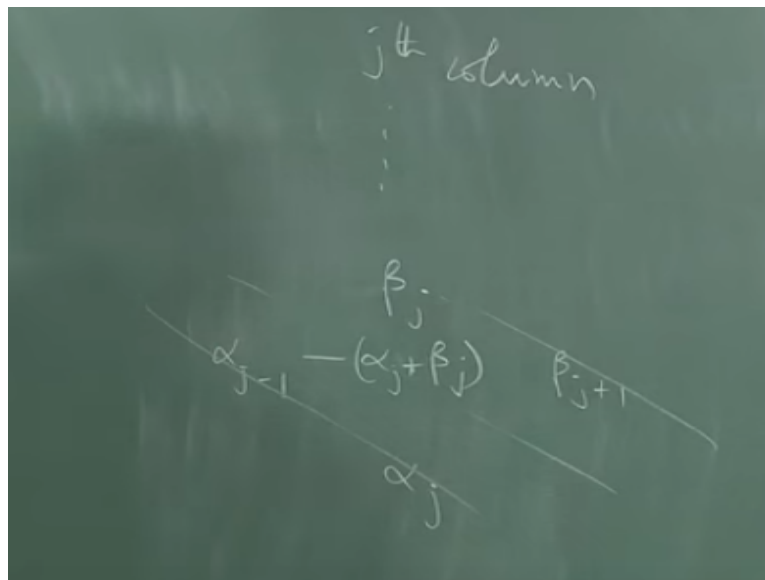 jth column
βj
αj-1 -(αj+βj) βj+1
αj